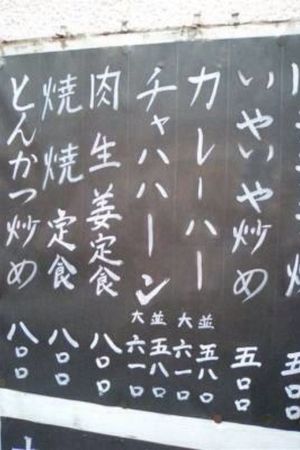 いやいや炒め 五〇〇
カレーハー 並五八〇 大六一〇
チャハハーン 並五八〇 大六一〇
肉生姜定食 八〇〇
焼焼定食 八〇〇
とんかつ炒め 八〇〇